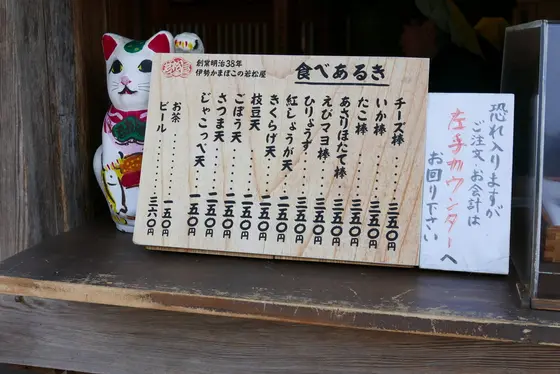 創業明治38年
伊勢かまぼこの若松屋
食べあるき
チーズ棒……三五〇円
いか棒……三五〇円
たこ棒……三五〇円
あさりほたて棒…三五〇円
えびマヨ棒……三五〇円
ひりょうず……三五〇円
紅しょうが天…二五〇円
きくらげ天……二五〇円
枝豆天……二五〇円
ごぼう天……二五〇円
さつま天……二五〇円
じゃこっぺ天…二五〇円
お茶……一五〇円
ビール……三六〇円
恐れ入りますが
ご注文、お会計は
左手カウンターへ
お回り下さい